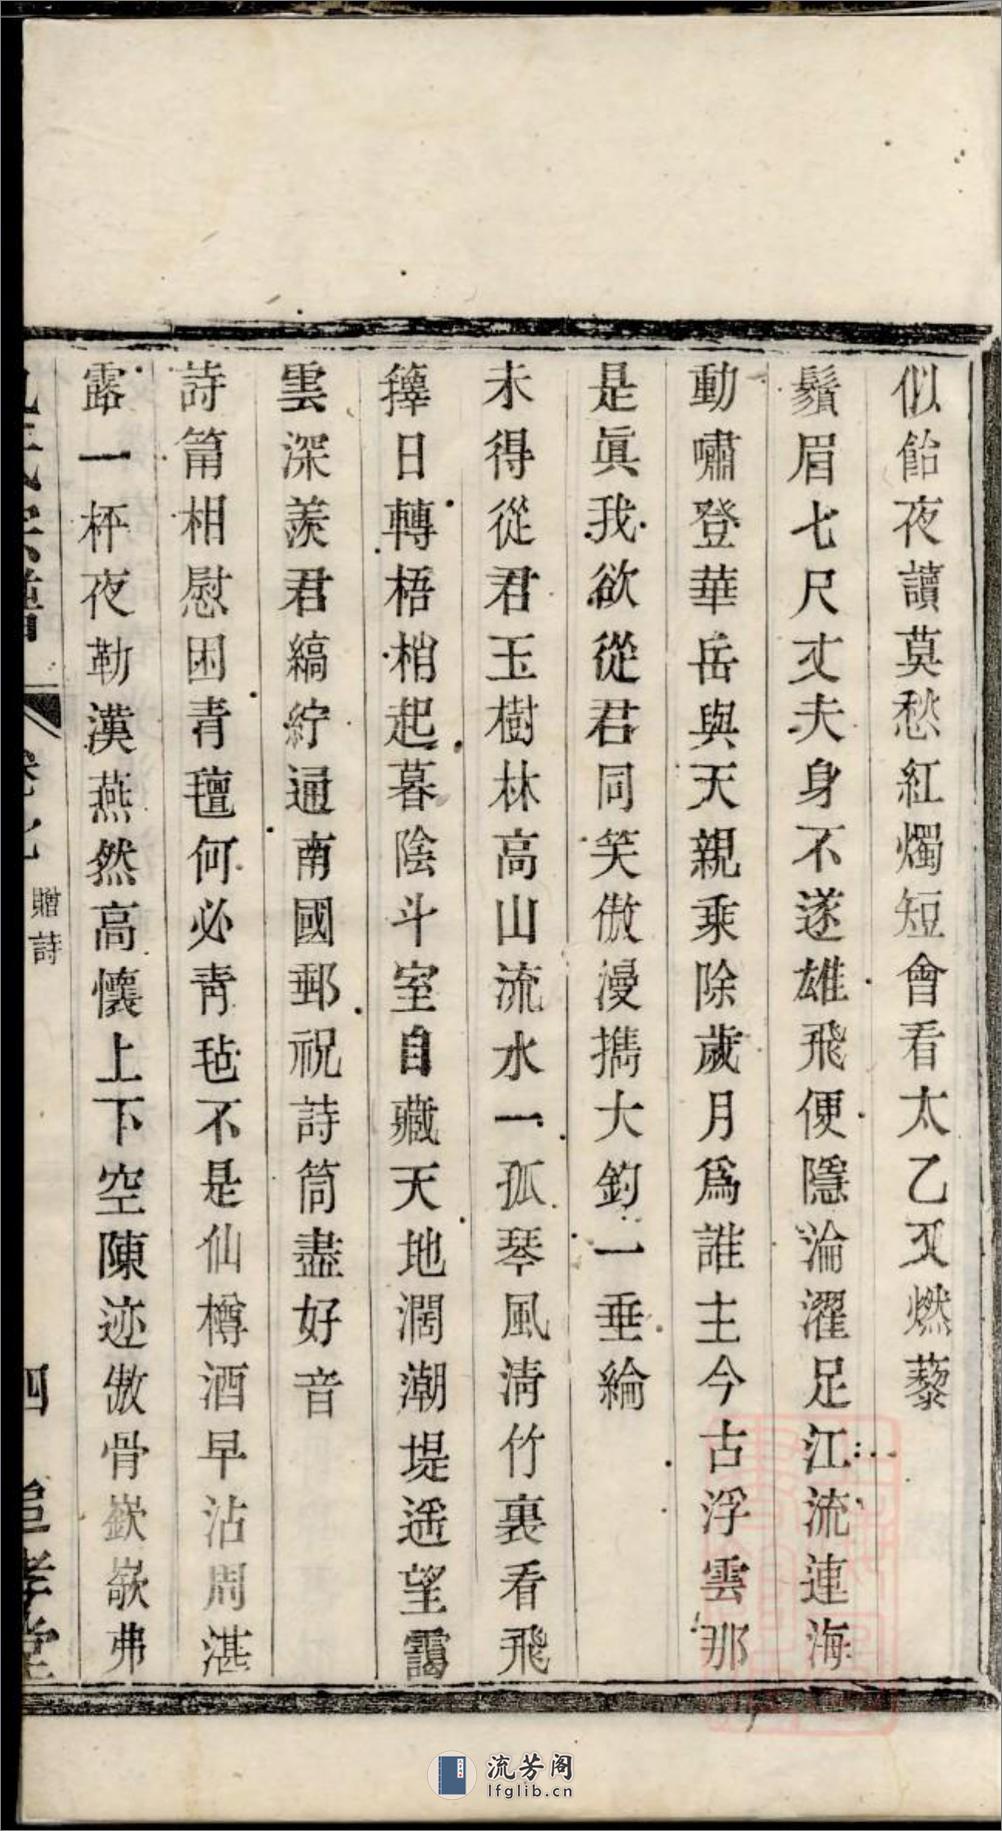 似飴夜讀莫愁紅燭短會看太乙又燃藜
鬚眉七尺丈夫身不遂雄飛便隱淪濯足江流連海
動嘯登華岳與天親乘除歲月爲誰主今古浮雲那
是眞我欲從君同笑傲漫擕大釣一垂綸
未得從君玉樹林高山流水一孤琴風清竹裏看飛
籜日轉梧梢起暮陰斗室自藏天地濶潮堤遥望靄
雲深羨君縞紵通南國郵祝詩筒盡好音
詩筩相慰困青氊何必靑毡不是仙樽酒早沾周湛
露一杯夜勒漢燕然高懷上下空陳迹傲骨嶔嶔弗
氏宗譜
卷之
贈詩
四
追孝堂
流芳阁
lfglib.cn